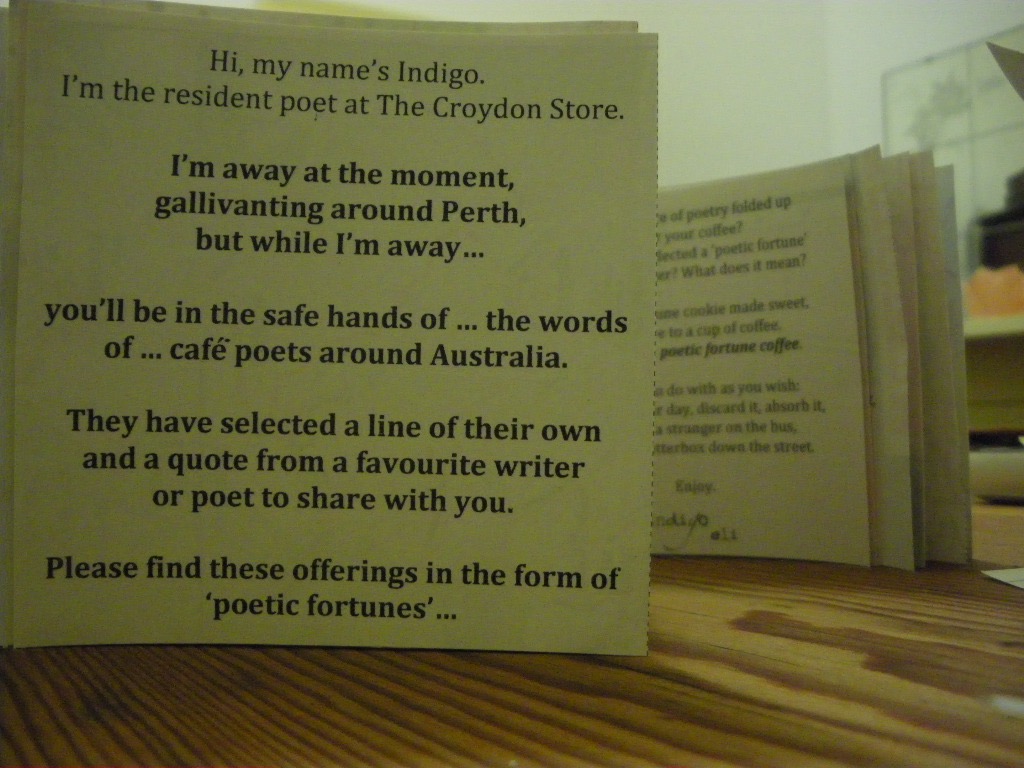 Hi, my name's Indigo.
I'm the resident poet at The Croydon Store.
I'm away at the moment,
gallivanting around Perth,
but while I'm away…
you'll be in the safe hands of … the words
of … café poets around Australia.
They have selected a line of their own
and a quote from a favourite writer
or poet to share with you.
Please find these offerings in the form of
'poetic fortunes'…
of poetry folded up
your coffee?
a 'poetic fortune'
What does it mean?
cookie made sweet,
to a cup of coffee.
poetic fortune coffee.
do with as you wish:
day, discard it, absorb it,
a stranger on the bus,
down the street.
Enjoy.